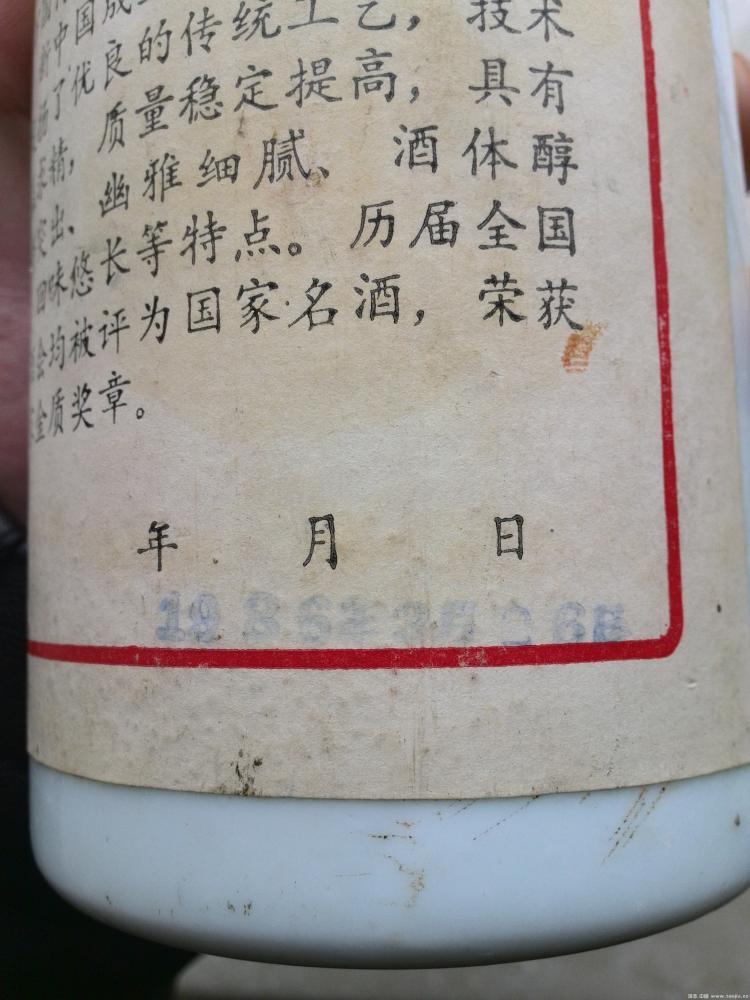 中国成
扬了优良的传统工艺，技术
精，质量稳定提高，具有
突出、幽雅细腻、酒体醇
回味悠长等特点。历届全国
会均被评为国家名酒，荣获
金质奖章。
年 月 日